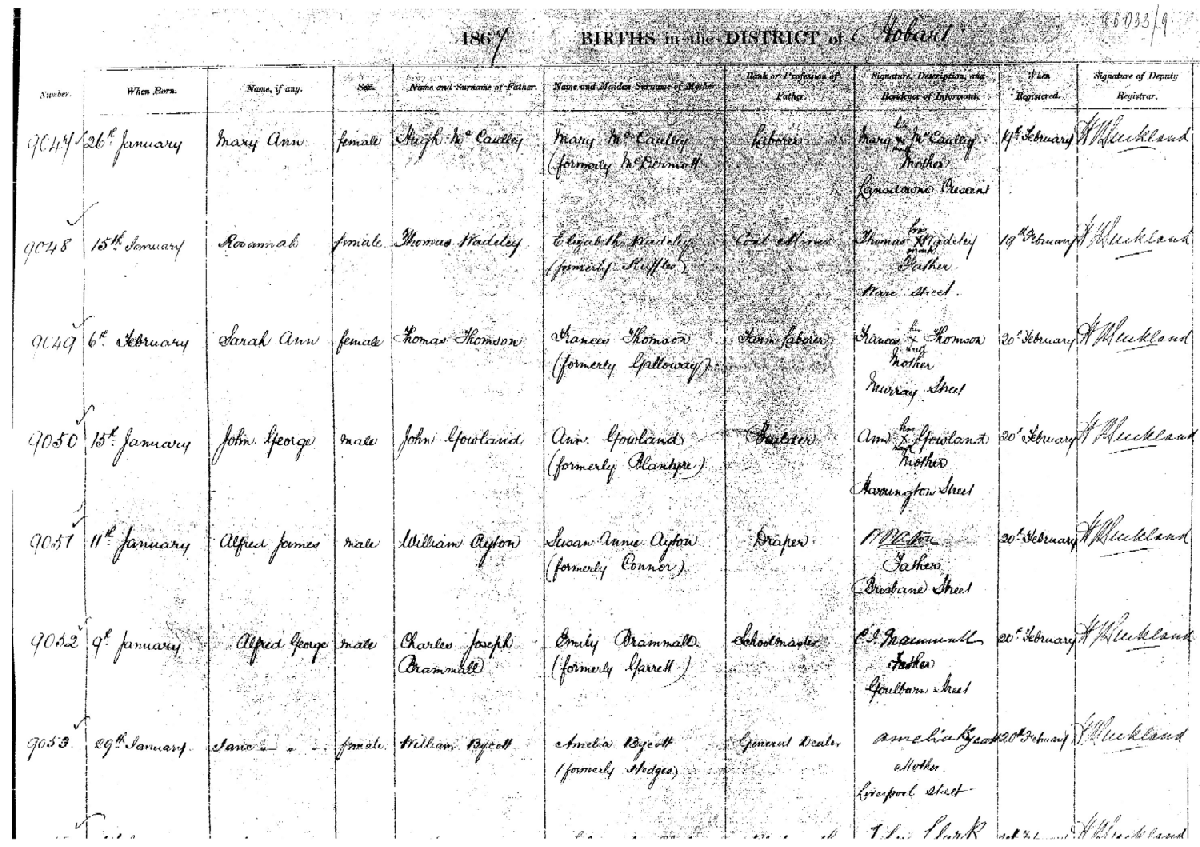 1867 BIRTHS in the DISTRICT of Hobart
Number. When Born. Name, if any. Sex. Name and Surname of Father. Name and Maiden Surname of Mother. Rank or Profession of Father. Signature, Description, and Residence of Informant. When Registered. Signature of Deputy Registrar.
9047 26th January Mary Ann female Hugh McCaulley Mary McCaulley Laborer Mary x McCaulley 19th February
(formerly McDermott Mother
Lansdowne Crescent
9048 15th January Rosannah female Thomas Madeley Elizabeth Madeley Coal Miner Thomas x Madeley 19th February
(formerly Father
Street
9049 6th February Sarah Ann female Thomas Thomson Frances Thomson Farm Laborer Frances x Thomson 20th February
(formerly Galloway) Mother
Murray Street
9050 15th January John George male John Gowland Ann Gowland Ann x Gowland 20th February
(formerly Plantyre) Mother
Harrington Street
9051 11th January Alfred James male William Ayton Susan Annie Ayton Draper 20th February
(formerly Connor) Father
Brisbane Street
9052 9th January Alfred George male Charles Joseph Emily Brammall Schoolmaster C.J. Brammall 20th February
Brammall (formerly Garrett) Father
Goulburn Street
9053 29th January Jane female William Bycott Amelia Bycott General Dealer Amelia Bycott 20th February
(formerly Hodges) Mother
Liverpool Street
Clark